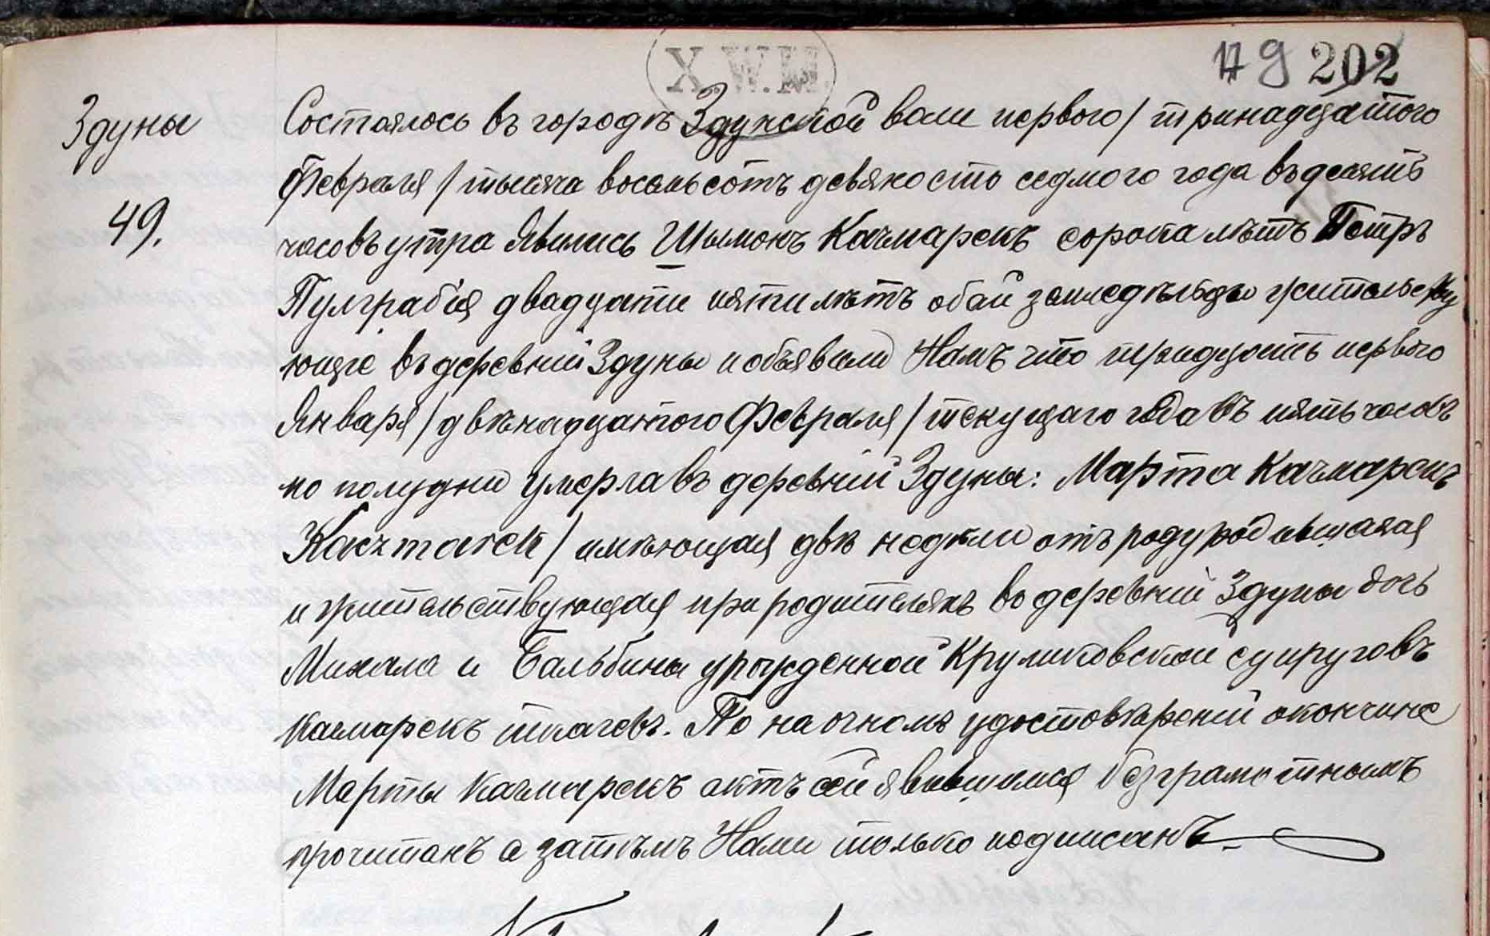 X.W.M.
179 202
Здуны
49.
Состоялось въ городѣ Здунской воли первого / тринадцатого
Февраля / тысяча восемьсотъ девяносто седмого года въ десять
часовъ утра Явились Шымонъ Качмарекъ сорока лѣтъ Петръ
двадцати пяти лѣтъ обаи земледѣльцы жительству
ющіе въ деревнии Здуны и объявили Намъ что тридцать первого
Января / двѣнадцатого Февраля / текущаго года въ пять часовъ
по полудни умерла въ деревнии Здуны: Марта Качмарекъ
Kaczmarek / имѣющая двѣ недѣли отъ роду
и жительствующая при родителяхъ во деревнии Здуны дочь
Михала и Бальбины урожденной супруговъ
Качмарекъ ткачевъ. По наочномъ удостовѣрении о кончине
Марты Качмарекъ актъ сей явившимся безграмотнымъ
прочитанъ а затѣмъ Нами только подписанъ.